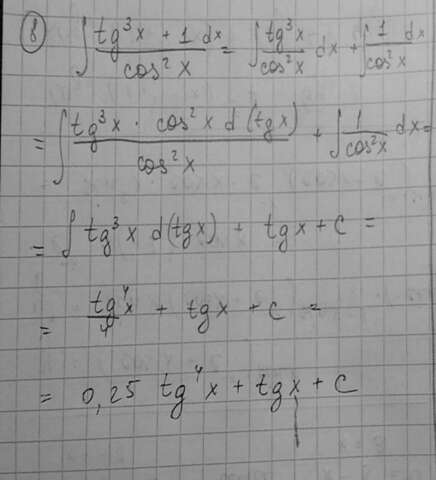 8) ∫ (tg³x + 1)/(cos²x) dx = ∫ tg³x/cos²x dx + ∫ 1/cos²x dx
= ∫ (tg³x · cos²x d(tgx))/cos²x + ∫ 1/cos²x dx =
= ∫ tg³x d(tgx) + tgx + C =
= tg⁴x/4 + tgx + C =
= 0,25 tg⁴x + tgx + C